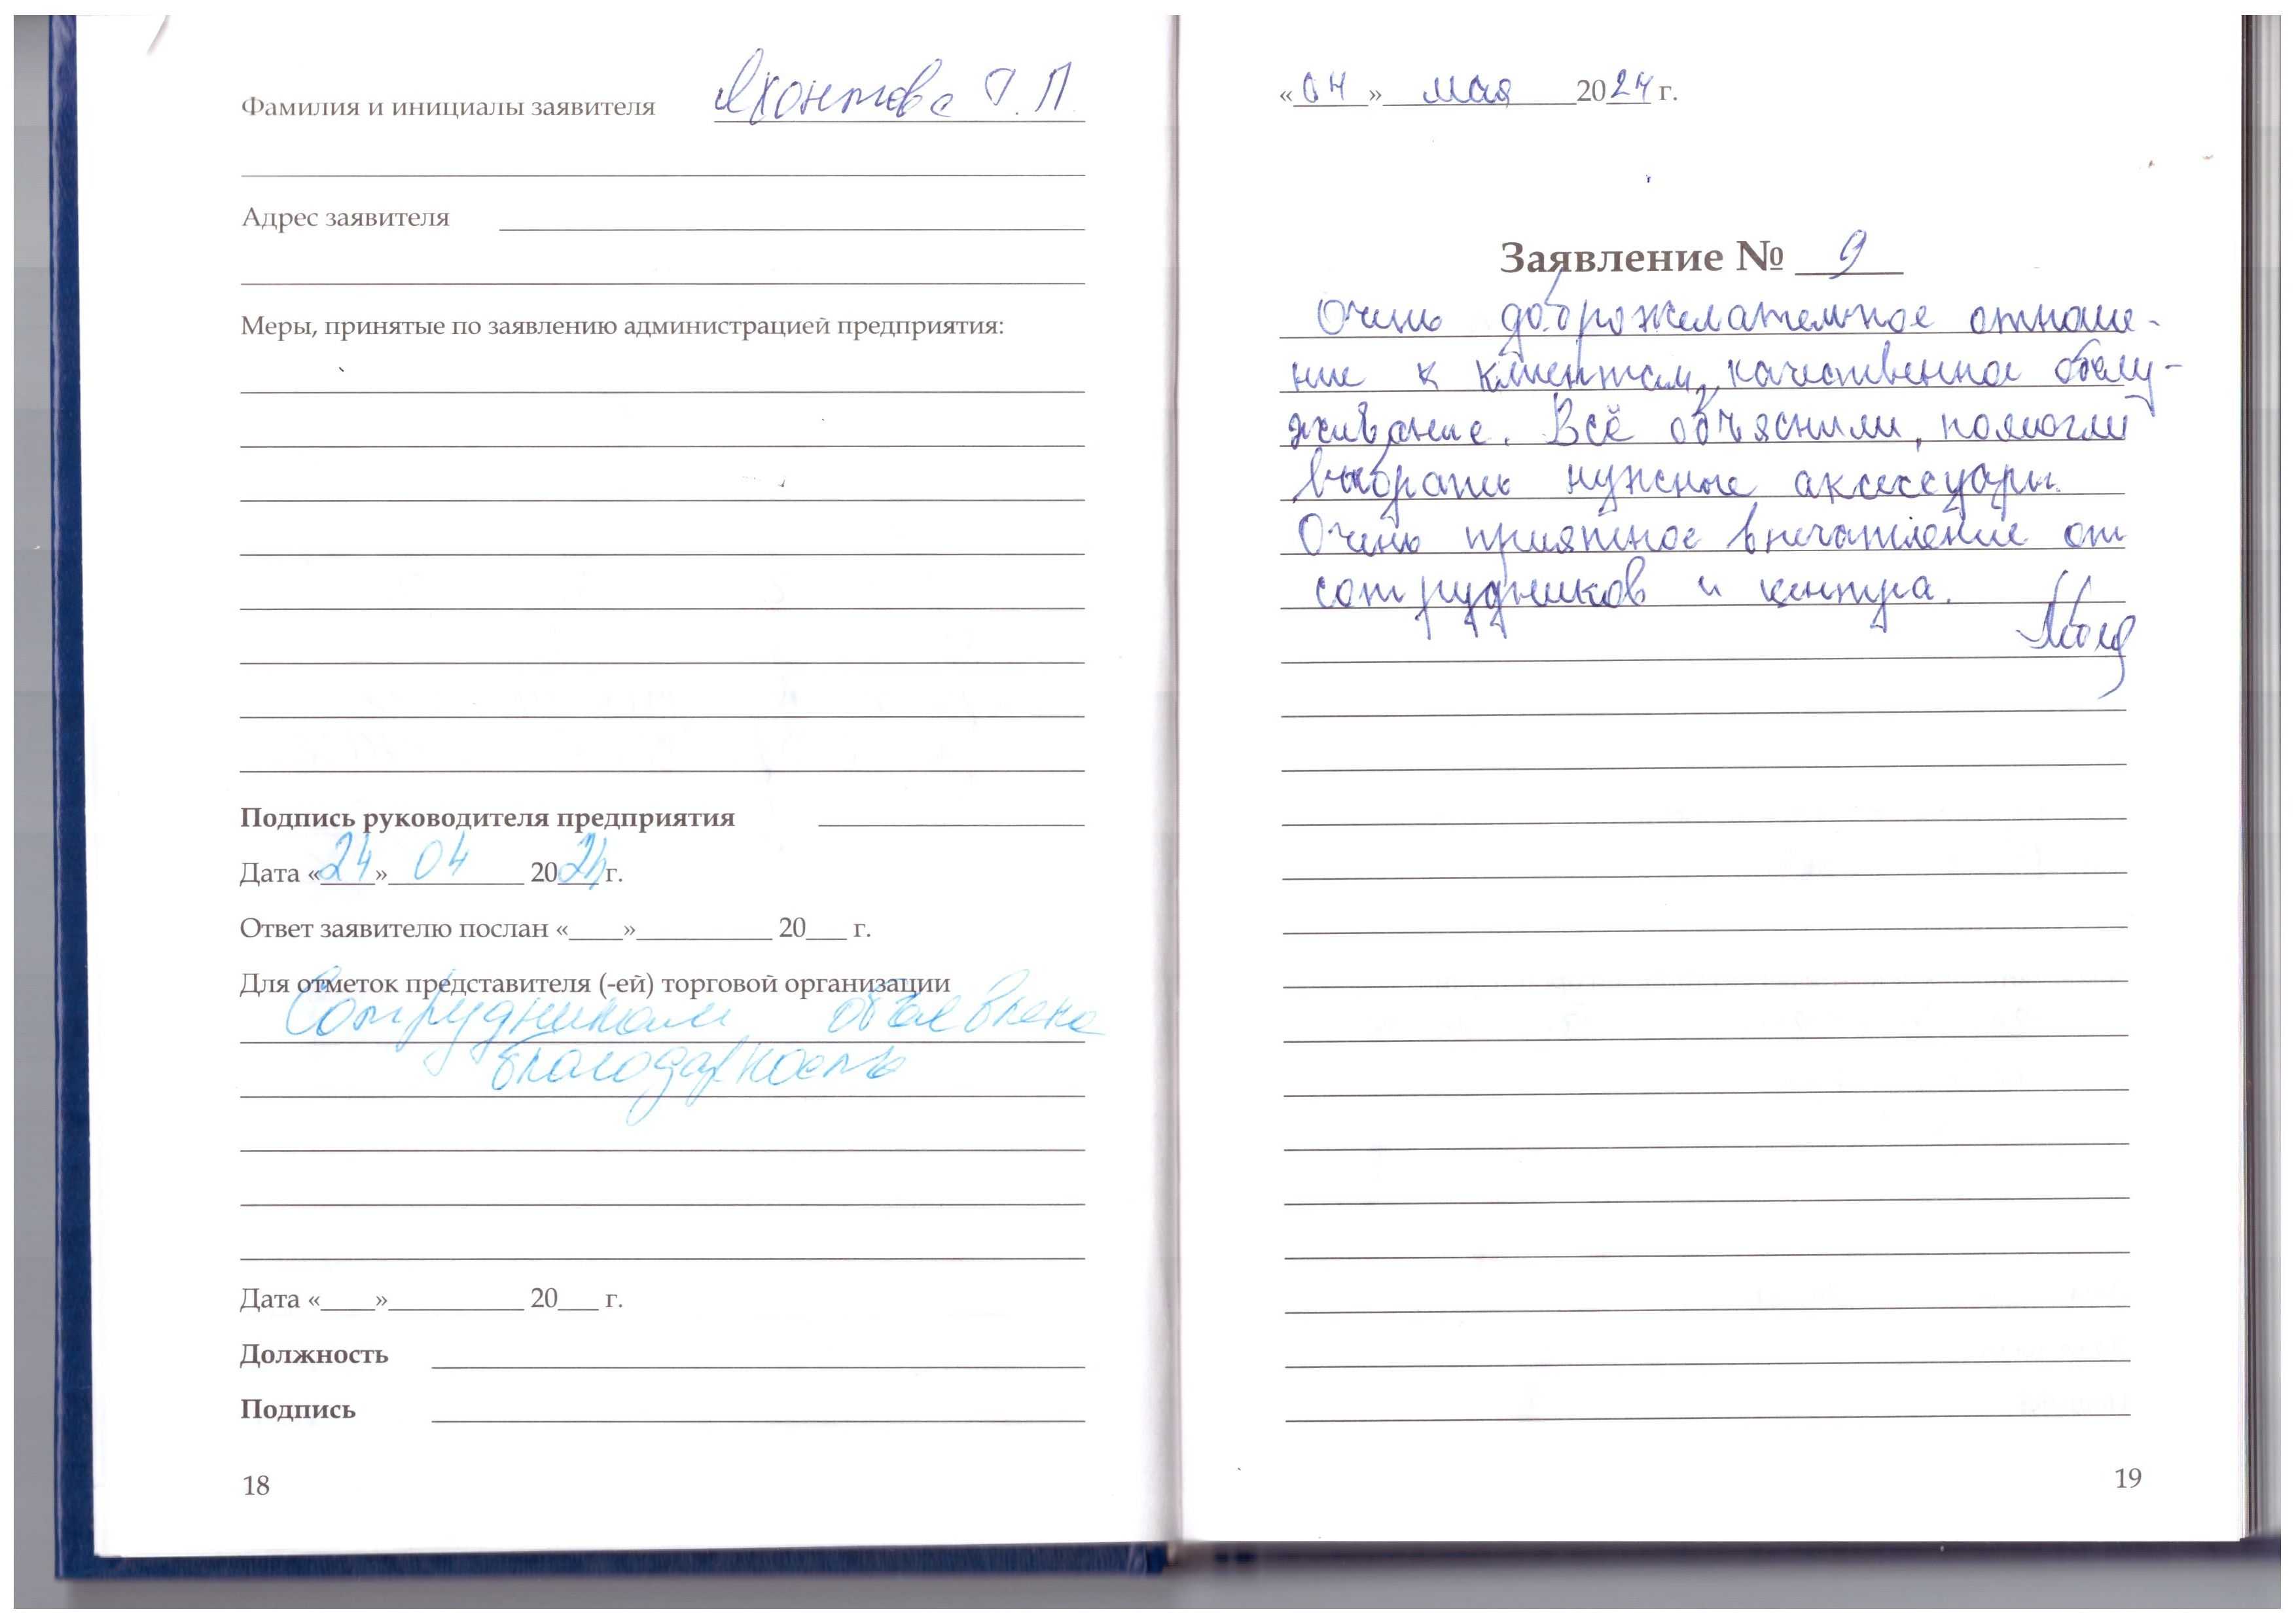 Фамилия и инициалы заявителя Яхонтова Г. П
Адрес заявителя
Меры, принятые по заявлению администрацией предприятия:
Подпись руководителя предприятия
Дата «24» 04 2024 г.
Ответ заявителю послан «____»__________ 20___ г.
Для отметок представителя (-ей) торговой организации
Сотрудникам объявлена
благодарность
Дата «____»__________ 20___ г.
Должность
Подпись
18
«04» мая 2024 г.
Заявление № 9
Очень доброжелательное отноше-
ние к клиентам, качественное обслу-
живание. Всё объяснили, помогли
выбрать нужные аксессуары.
Очень приятное впечатление от
сотрудников и центра.
19